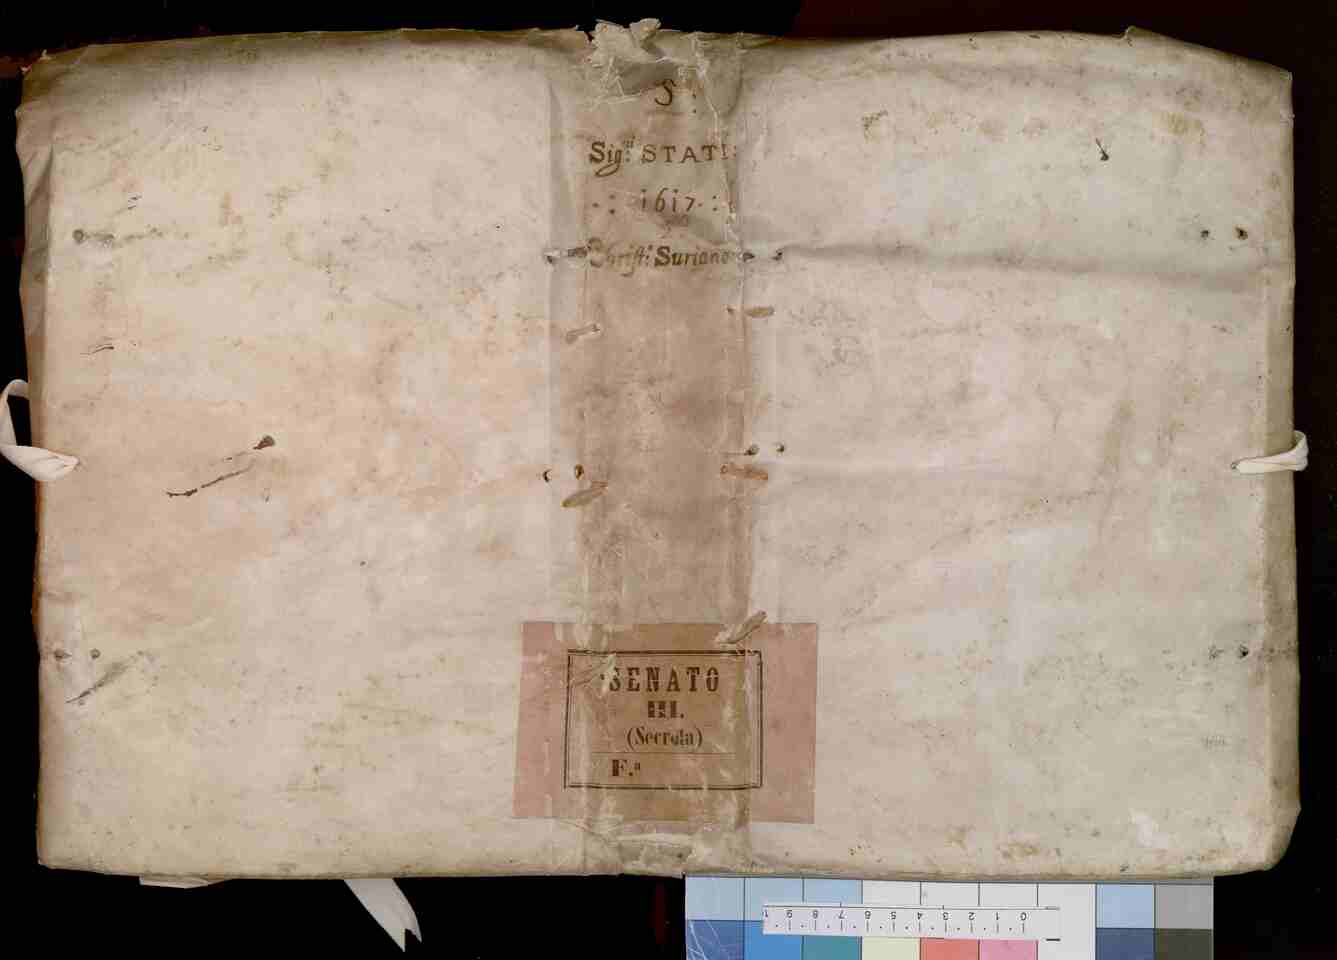 S:
Sig.ri STATI:
.: 1617 .:
Christ.o Suriano
SENATO
III.
(Secreta)
F.a
0 1 2 3 4 5 6 7 8 9 1